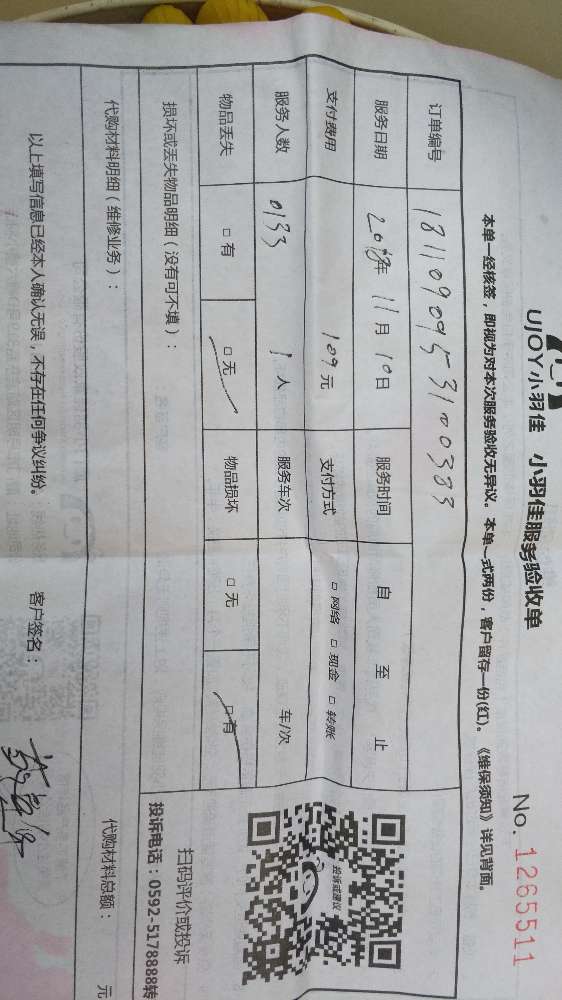 UJOY小羽佳 小羽佳服务验收单
No. 1265511
本单一经核签，即视为对本次服务验收无异议。本单一式两份，客户留存一份(红)。《维保须知》详见背面。
订单编号 1811090953100383
服务日期 2018年 11月 10日 服务时间 自 至 止
支付费用 109元 支付方式 □ 网络 □ 现金 □ 转账
服务人数 0133 1 人 服务车次 车/次
物品丢失 □ 有 □ 无 物品损坏 □ 无 □ 有
投诉或建议
扫码评价或投诉
投诉电话：0592-5178888转
损坏或丢失物品明细（没有可不填）：
代购材料明细（维修业务）： 代购材料总额： 元
以上填写信息已经本人确认无误，不存在任何争议纠纷。 客户签名：